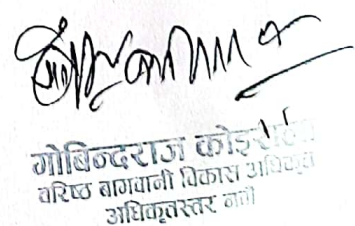 गोबिन्दराज कोइराला
वरिष्ठ बागवानी विकास अधिकृत
अधिकृतस्तर नवौं